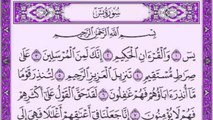 سُورَةُ يسٓ
بِسْمِ ٱللَّهِ ٱلرَّحْمَٰنِ ٱلرَّحِيمِ
يسٓ ۝١ وَٱلْقُرْءَانِ ٱلْحَكِيمِ ۝٢ إِنَّكَ لَمِنَ ٱلْمُرْسَلِينَ ۝٣ عَلَىٰ
صِرَٰطٍ مُّسْتَقِيمٍ ۝٤ تَنزِيلَ ٱلْعَزِيزِ ٱلرَّحِيمِ ۝٥ لِتُنذِرَ قَوْمًا
مَّآ أُنذِرَ ءَابَآؤُهُمْ فَهُمْ غَٰفِلُونَ ۝٦ لَقَدْ حَقَّ ٱلْقَوْلُ عَلَىٰٓ أَكْثَرِهِمْ
فَهُمْ لَا يُؤْمِنُونَ ۝٧ إِنَّا جَعَلْنَا فِىٓ أَعْنَٰقِهِمْ أَغْلَٰلًا فَهِىَ إِلَى